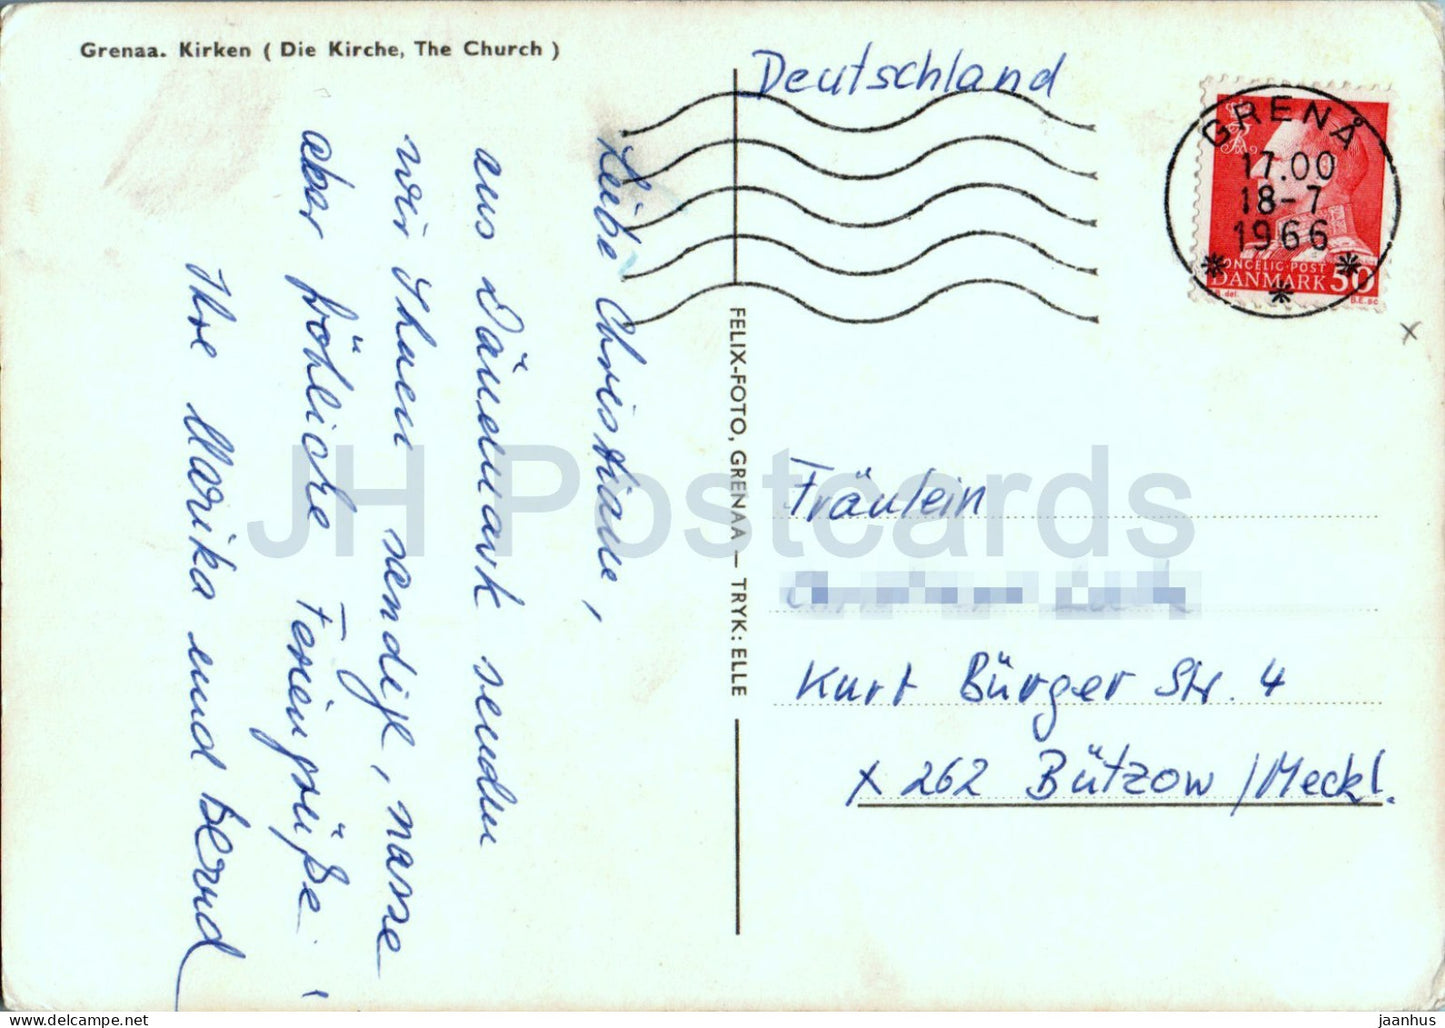 Grenaa. Kirken ( Die Kirche, The Church )
Deutschland
GRENÅ
17.00
18-7
1966
KONGELIG POST
DANMARK 50
B.E. sc
Liebe Christiane,
aus Dänemark senden
wir Ihnen sandige, nasse
aber fröhliche Feriengrüße!
Ihre Marika und Bernd
FELIX-FOTO, GRENAA — TRYK: ELLE
Fräulein
Kurt Bürger Str. 4
x 262 Bützow /Meckl.
x
JH Postcards
www.hippostcard.com
jaanhus